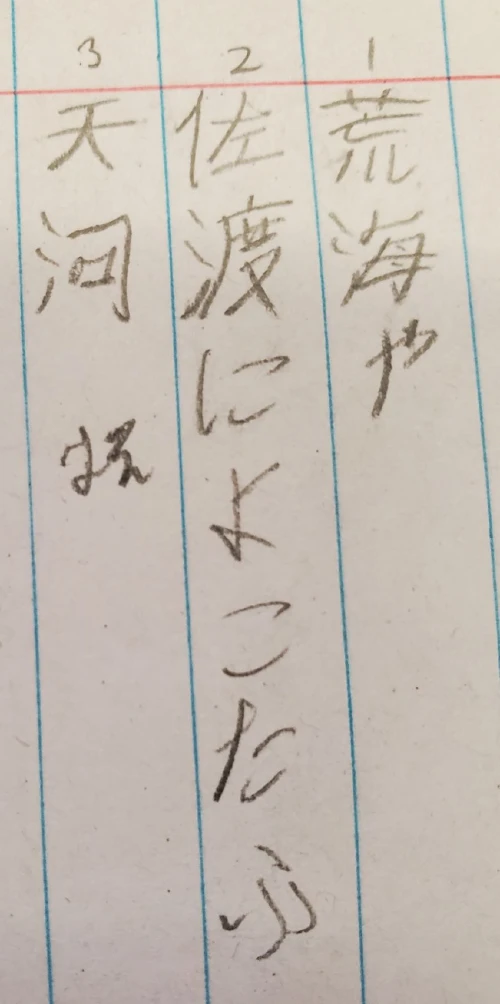 1 荒海や
2 佐渡によこたふ
3 天河